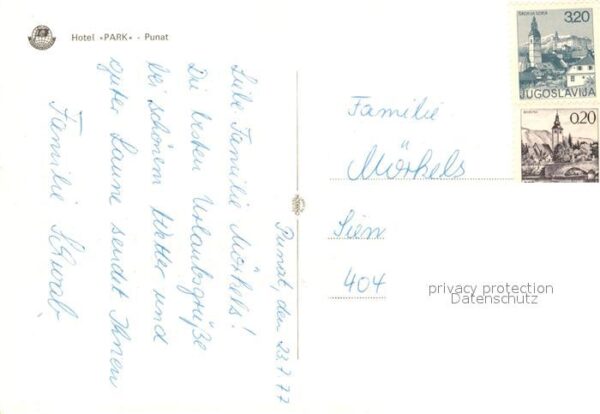 Hotel »PARK« - Punat
Punat, den 23.7.77
Liebe Familie Mörkels!
Die besten Urlaubsgrüße
bei schönem Wetter und
guter Laune sendet Ihnen
Familie Schwab
3,20
JUGOSLAVIJA
0,20
Familie
Mörkels
Sien
404
privacy protection
Datenschutz